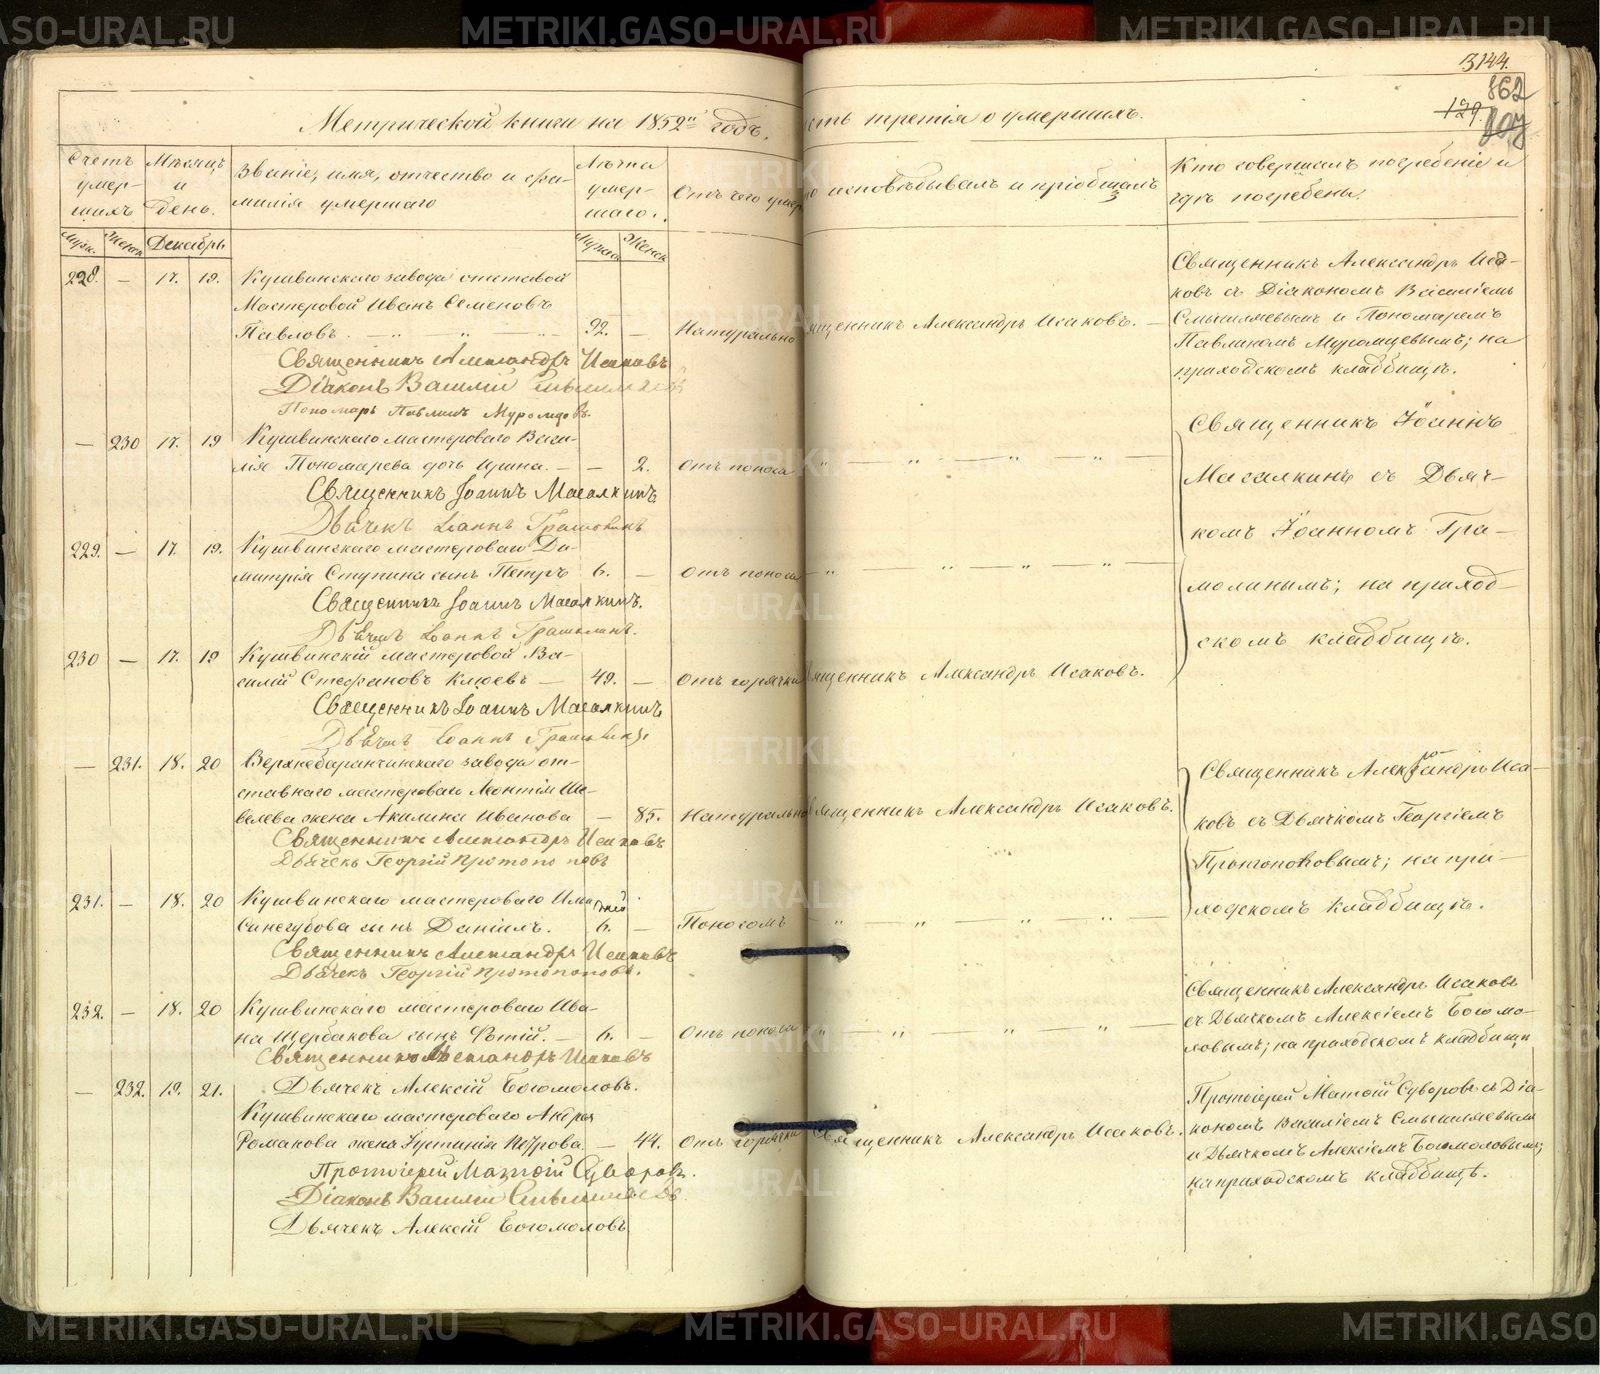 METRIKI.GASO-URAL.RU
3144.
862
129.
Метрической книги на 1852й годъ, часть третія о умершихъ.
Счетъ умер-шихъ
Мѣсяцъ и день.
Званіе, имя, отчество и фа-
милія умершаго
Лѣта умер-шаго.
Отъ чего умеръ
Кто исповѣдывалъ и пріобщалъ
Кто совершалъ погребеніе и
гдѣ погребены.
Муж. Женск. Декабрь Мужск. Женск.
228. — 17. 19. Кушвинскаго завода отставной
Мастеровой Иванъ Семеновъ
Павловъ. 92. — Натурально Священникъ Александръ Исаковъ.
Священникъ Александръ Иса-
ковъ съ Діакономъ Василіемъ
Смышляевымъ и Пономаремъ
Павлиномъ Муромцевымъ; на
приходскомъ кладбищѣ.
Священникъ Александръ Исаковъ
Діаконъ Василій Смышляевъ
Пономарь Павлинъ Муромцовъ.
— 230 17. 19 Кушвинскаго мастероваго Васи-
лія Пономарева дочь Ирина. — — 2. Отъ поноса
Священникъ Іоаннъ Масалкинъ
Дьячекъ Іоаннъ Грамолинъ
Священникъ Іоаннъ
Масалкинъ съ Дьяч-
комъ Іоанномъ Гра-
молинымъ; на приход-
скомъ кладбищѣ.
229. — 17. 19. Кушвинскаго мастероваго Ди-
митрія Ступина сынъ Петръ 6. — Отъ поноса
Священникъ Іоаннъ Масалкинъ.
Дьячекъ Іоаннъ Грамолинъ.
230 — 17. 19 Кушвинскій мастеровой Ва-
силій Стефановъ Клюевъ — 49. — Отъ горячки Священникъ Александръ Исаковъ.
Священникъ Іоаннъ Масалкинъ
Дьячекъ Іоаннъ Грамолинъ
— 231. 18. 20 Верхнебаранчинскаго завода от-
ставнаго мастероваго Леонтія Ше-
велева жена Акилина Иванова — 85. Натурально Священникъ Александръ Исаковъ.
Священникъ Александръ Исаковъ
Дьячекъ Георгій Протопоповъ
Священникъ Александръ Иса-
ковъ съ Дьячкомъ Георгіемъ
Протопоповымъ; на при-
ходскомъ кладбищѣ.
231. — 18. 20 Кушвинскаго мастероваго Ильи
Синегубова сынъ Даніилъ. дней 6. — Поносомъ
Священникъ Александръ Исаковъ
Дьячекъ Георгій Протопоповъ.
232. — 18. 20 Кушвинскаго мастероваго Ива-
на Щербакова сынъ Фотій. — 6. — Отъ поноса
Священникъ Александръ Исаковъ
Дьячекъ Алексій Богомоловъ.
Священникъ Александръ Исаковъ
съ Дьячкомъ Алексіемъ Богомо-
ловымъ; на приходскомъ кладбищѣ
— 232. 19. 21. Кушвинскаго мастероваго Андрея
Романова жена Іустинія Петрова — 44. Отъ горячки Священникъ Александръ Исаковъ.
Протоіерей Матѳій Суворовъ.
Діаконъ Василій Смышляевъ
Дьячекъ Алексій Богомоловъ
Протоіерей Матѳій Суворовъ съ Діа-
кономъ Василіемъ Смышляевымъ
и Дьячкомъ Алексіемъ Богомоловымъ;
на приходскомъ кладбищѣ.